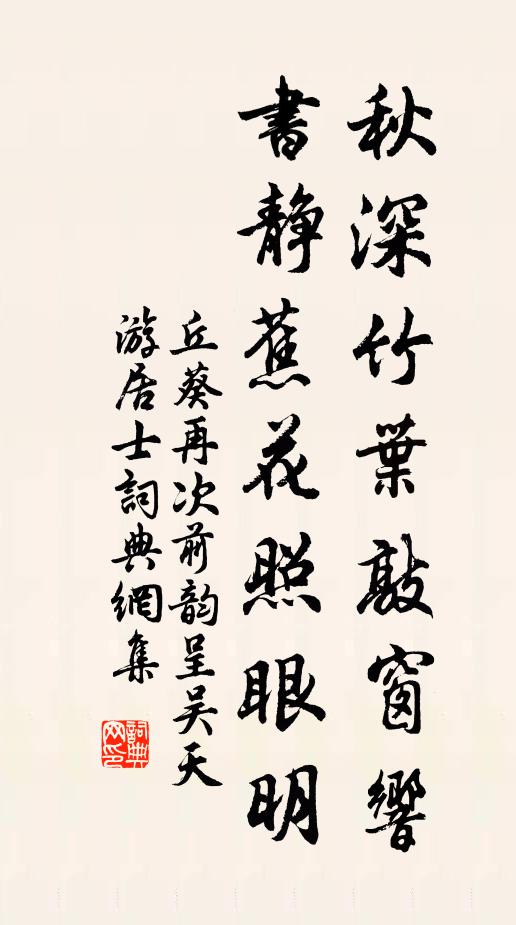 秋深竹葉敲窗響
書静蕉花照眼明
丘葵再次前韵呈吴天
游居士詞典網集
詞典
网印